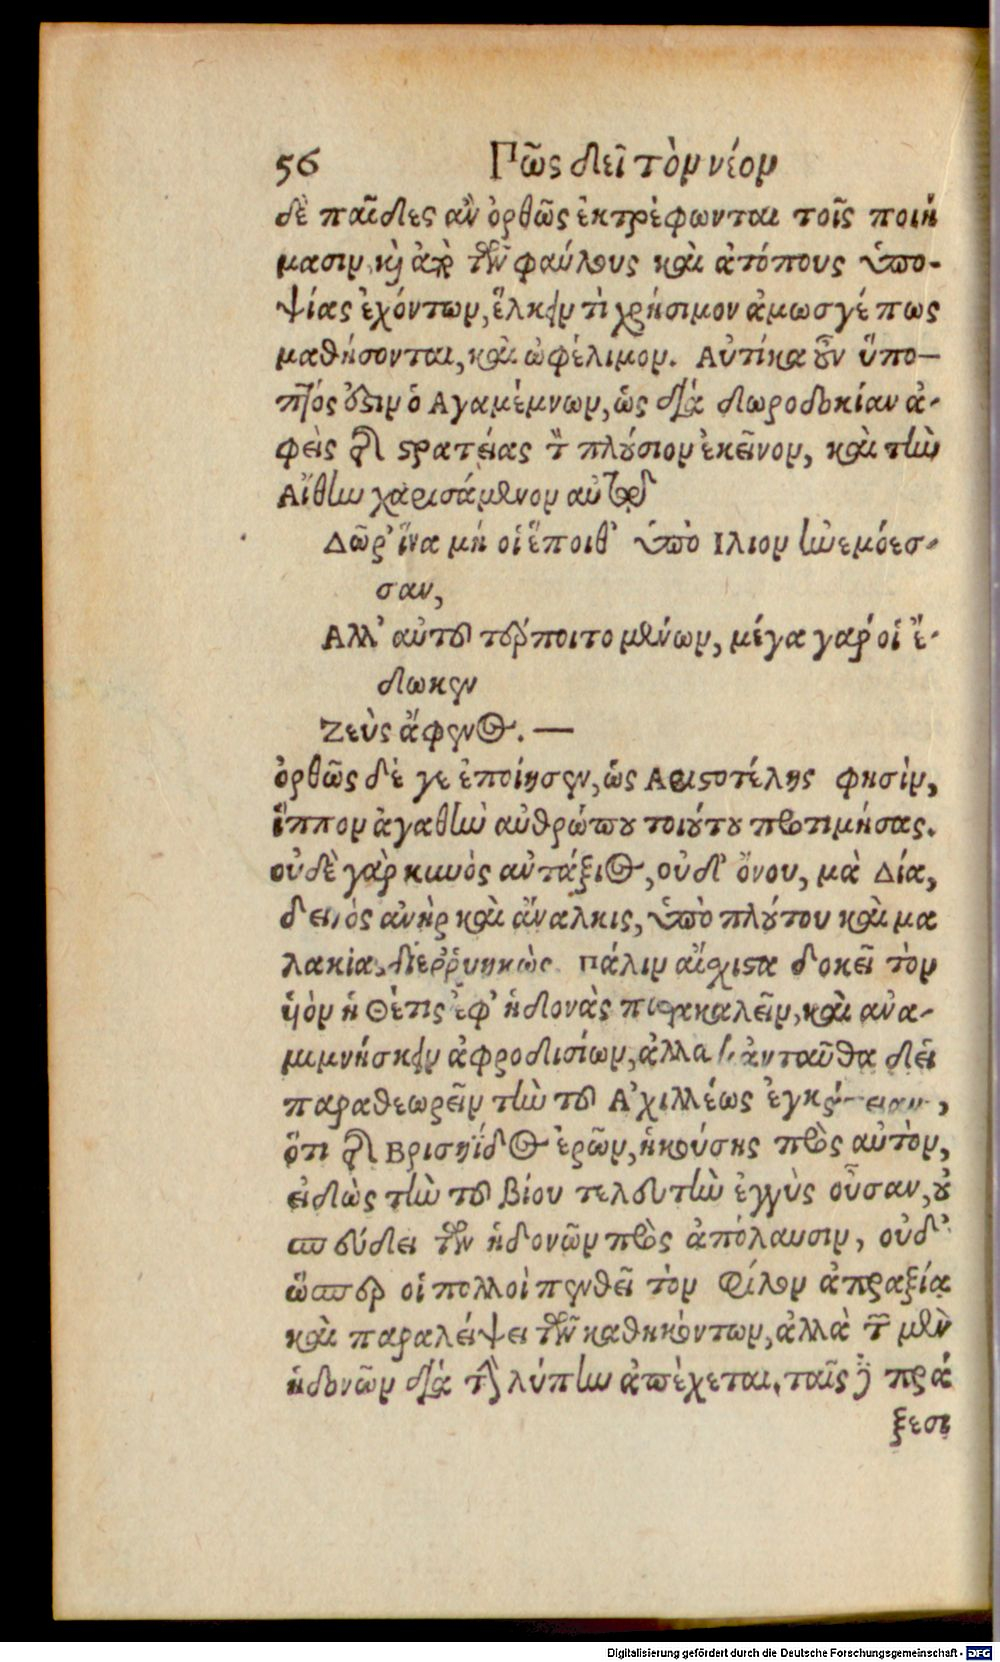 56 Πῶς δεῖ τὸν νέον
δὲ παῖδες ἂν ὀρθῶς ἐκτρέφωνται τοῖς ποιή
μασιν, καὶ ἀπὸ τῶν φαύλους καὶ ἀτόπους ὑπο-
ψίας ἐχόντων, ἕλκειν τὶ χρήσιμον ἁμωσγέπως
μαθήσονται, καὶ ὠφέλιμον. Αὐτίκα οὖν ὕπο-
πτός ὅστιν ὁ Αγαμέμνων, ὡς διὰ δωροδοκίαν ἀ-
φεὶς τῆς στρατείας τὸν πλούσιον ἐκεῖνον, καὶ τὴν
Αἴθην χαρισάμενον αὐτῷ
Δῶρ' ἵνα μή οἱ ἕποιθ' ὑπὸ Ιλιον ἠνεμόεσ-
σαν,
Αλλ' αὐτοῦ τέρποιτο μένων, μέγα γάρ οἱ ἔ-
δωκεν
Ζεὺς ἄφενος. —
ὀρθῶς δέ γε ἐποίησεν, ὡς Αριστοτέλης φησὶν,
ἵππον ἀγαθὴν ἀνθρώπου τοιούτου προτιμήσας.
οὐδὲ γὰρ κυνὸς ἀντάξιος, οὐδ' ὄνου, μὰ Δία,
δειλὸς ἀνὴρ καὶ ἄναλκις, ὑπὸ πλούτου καὶ μα
λακία, διερρυηκὼς. Πάλιν αἴσχιστα δοκεῖ τὸν
υἱὸν ἡ Θέτις ἐφ' ἡδονὰς παρακαλεῖν, καὶ ἀνα-
μιμνήσκειν ἀφροδισίων, ἀλλὰ κἀνταῦθα δεῖ
παραθεωρεῖν τὴν τοῦ Ἀχιλλέως ἐγκράτειαν,
ὅτι τῆς Βρισηΐδος ἐρῶν, ἡκούσης πρὸς αὐτὸν,
εἰδὼς τὴν τοῦ βίου τελευτὴν ἐγγὺς οὖσαν, οὐ
σπεύδει τῶν ἡδονῶν πρὸς ἀπόλαυσιν, οὐδ'
ὥσπερ οἱ πολλοὶ πενθεῖ τὸν φίλον ἀπραξία
καὶ παραλείψει τῶν καθηκόντων, ἀλλὰ τῶν μὲν
ἡδονῶν διὰ τὴν λύπην ἀπέχεται, ταῖς δὲ πρά
ξεσι
Digitalisierung gefördert durch die Deutsche Forschungsgemeinschaft - DFG